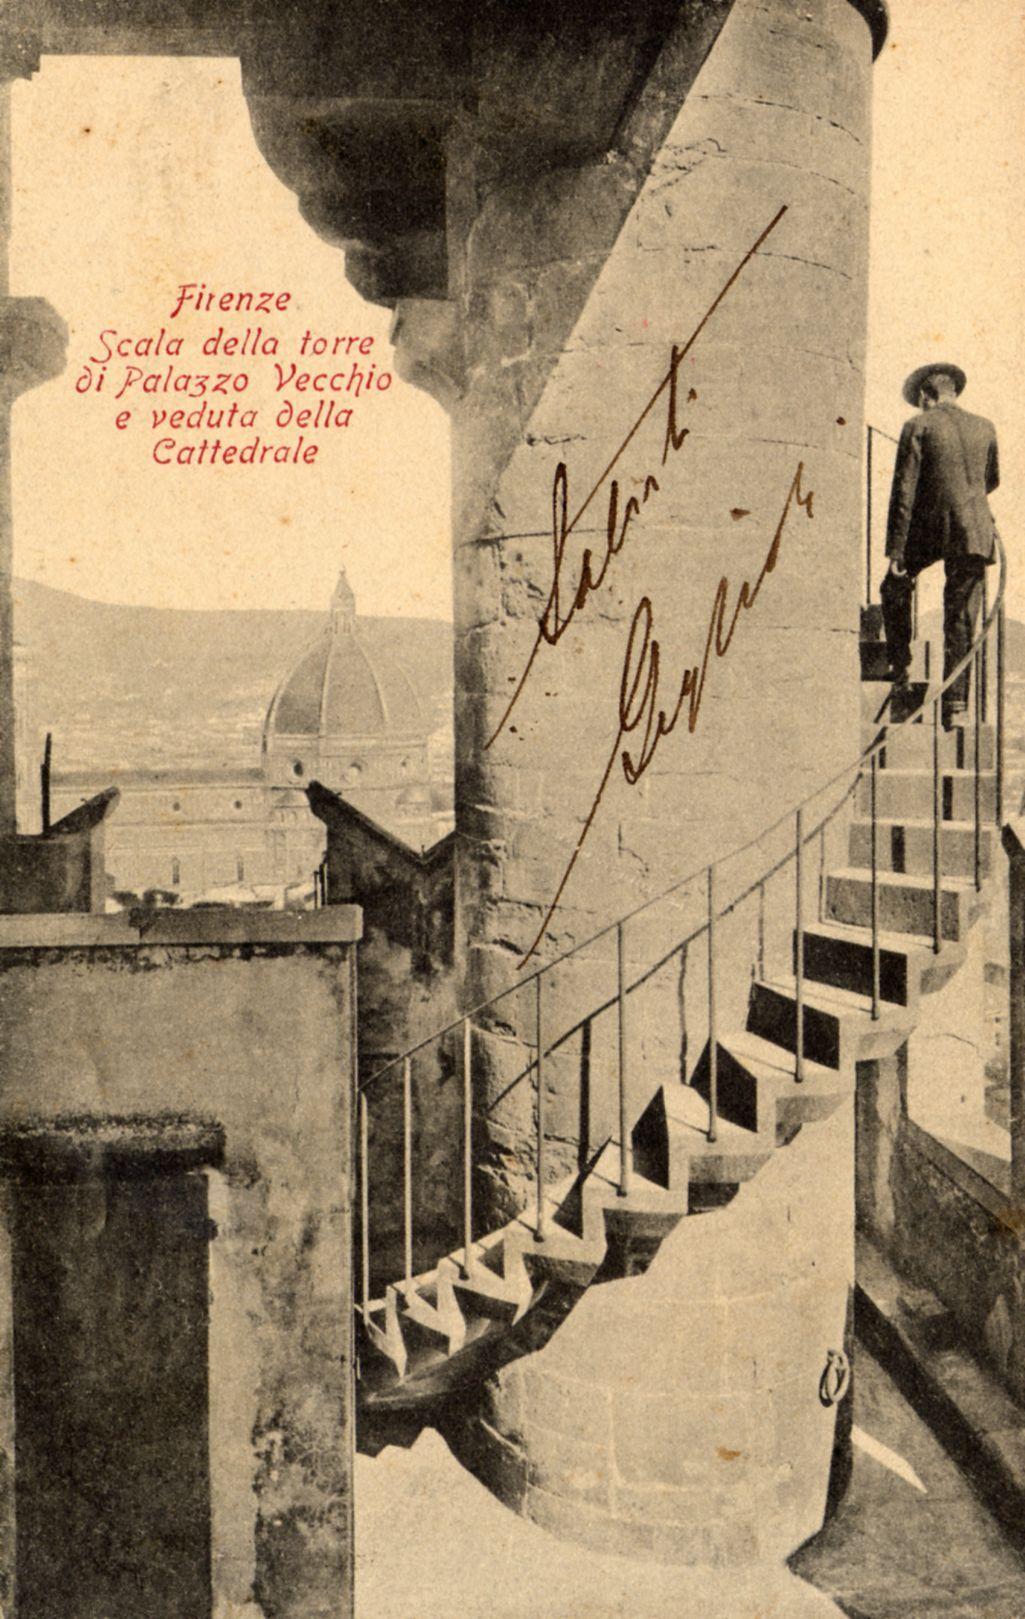 Firenze
Scala della torre
di Palazzo Vecchio
e veduta della
Cattedrale
Saluti